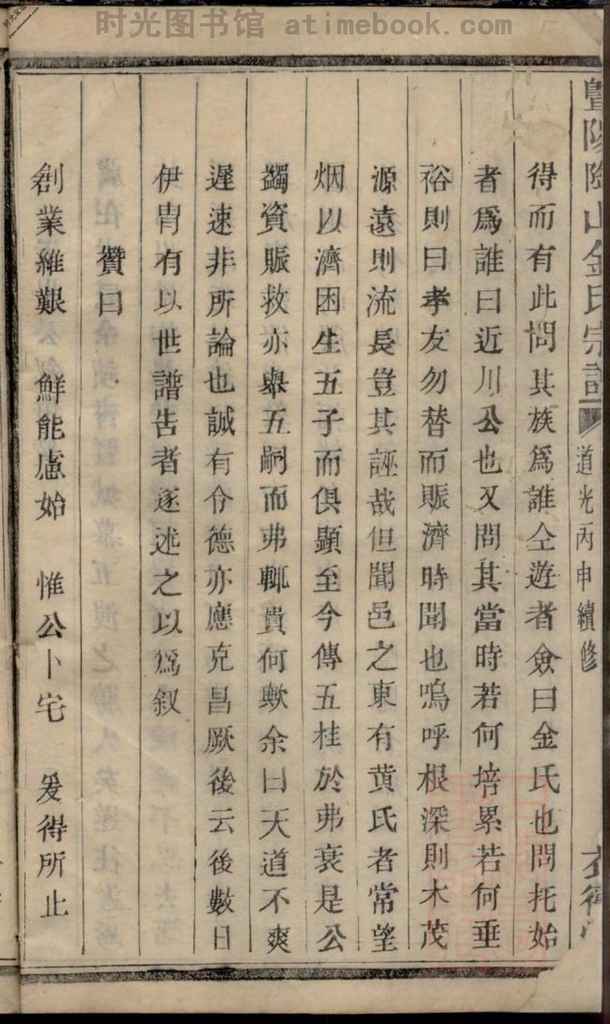 时光图书馆 atimebook.com
暨陽陰山金氏宗譜 道光丙申續修
得而有此問其族爲誰仝遊者僉曰金氏也問托始
者爲誰曰近川公也又問其當時若何培累若何垂
裕則曰孝友勿替而賑濟時聞也嗚呼根深則木茂
源遠則流長豈其誣哉但聞邑之東有黄氏者常望
烟以濟困生五子而俱顯至今傳五桂於弗衰是公
蠲資賑救亦舉五嗣而弗輒貴何歟余曰天道不爽
遲速非所論也誠有令德亦應克昌厥後云後數日
伊胄有以世譜告者遂述之以爲叙
贊曰
創業維艱 鮮能慮始 惟公卜宅 爰得所止